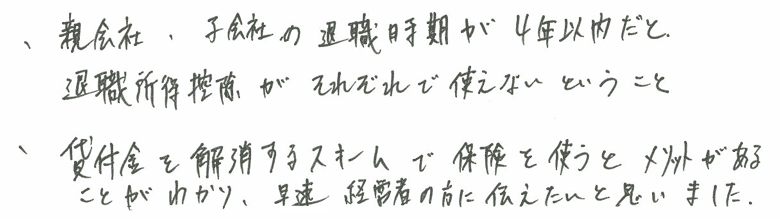 、親会社、子会社の退職時期が4年以内だと、
退職所得控除がそれぞれで使えないということ
、貸付金を解消するスキームで保険を使うとメリットがある
ことがわかり、早速経営者の方に伝えたいと思いました.